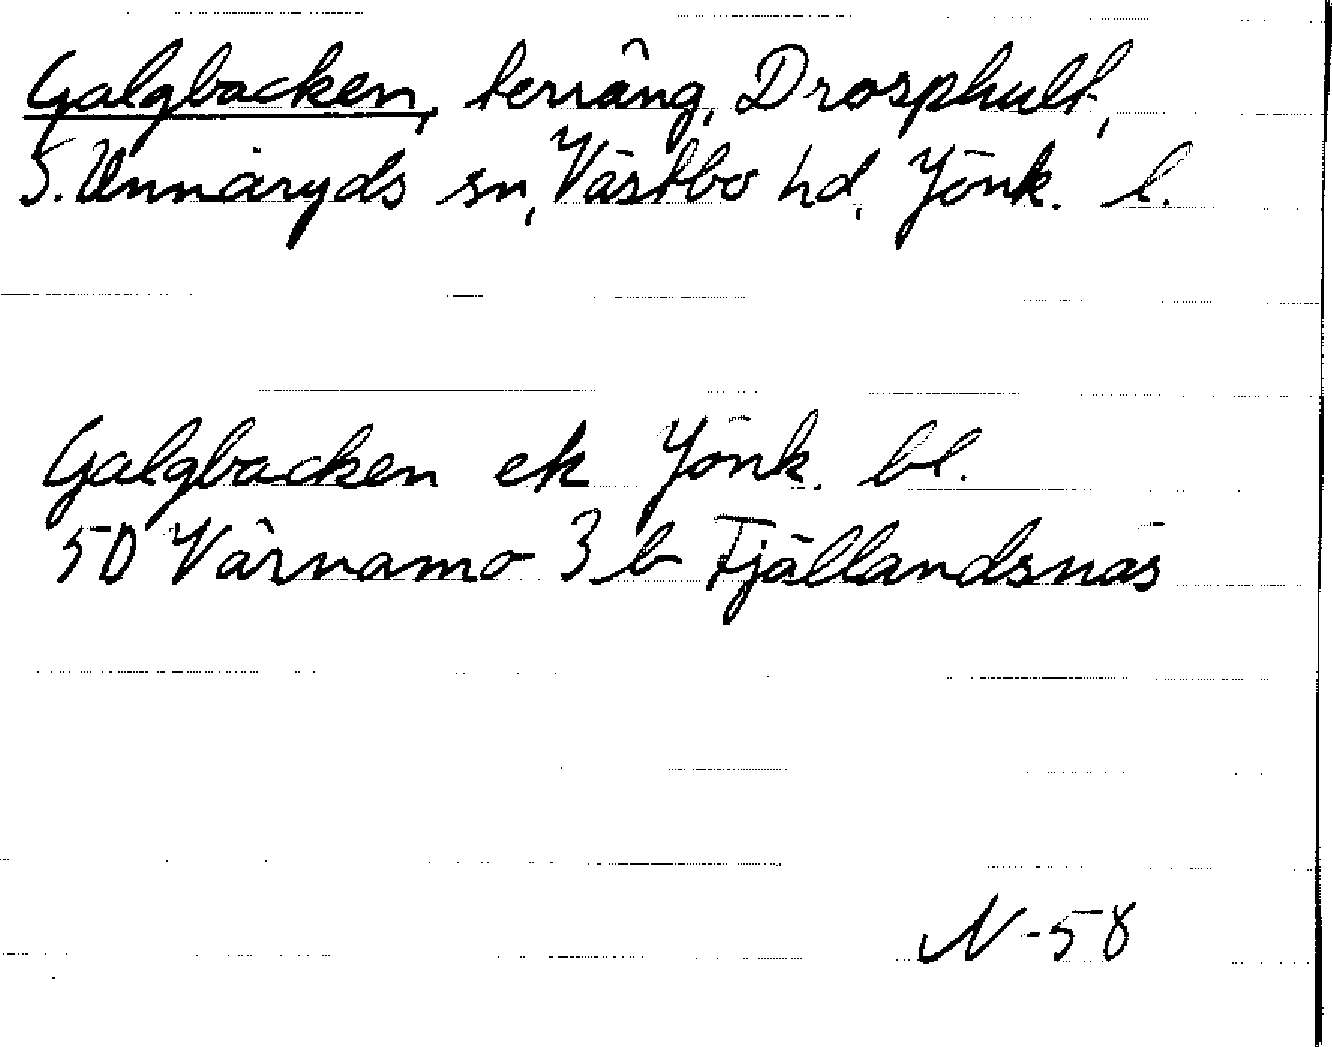 Galgbacken, terräng, Drosphult,
S. Unnaryds sn, Västbo hd, Jönk. l.
Galgbacken ek Jönk. bl.
5D Värnamo 3 b Fjällandsnäs
N-58